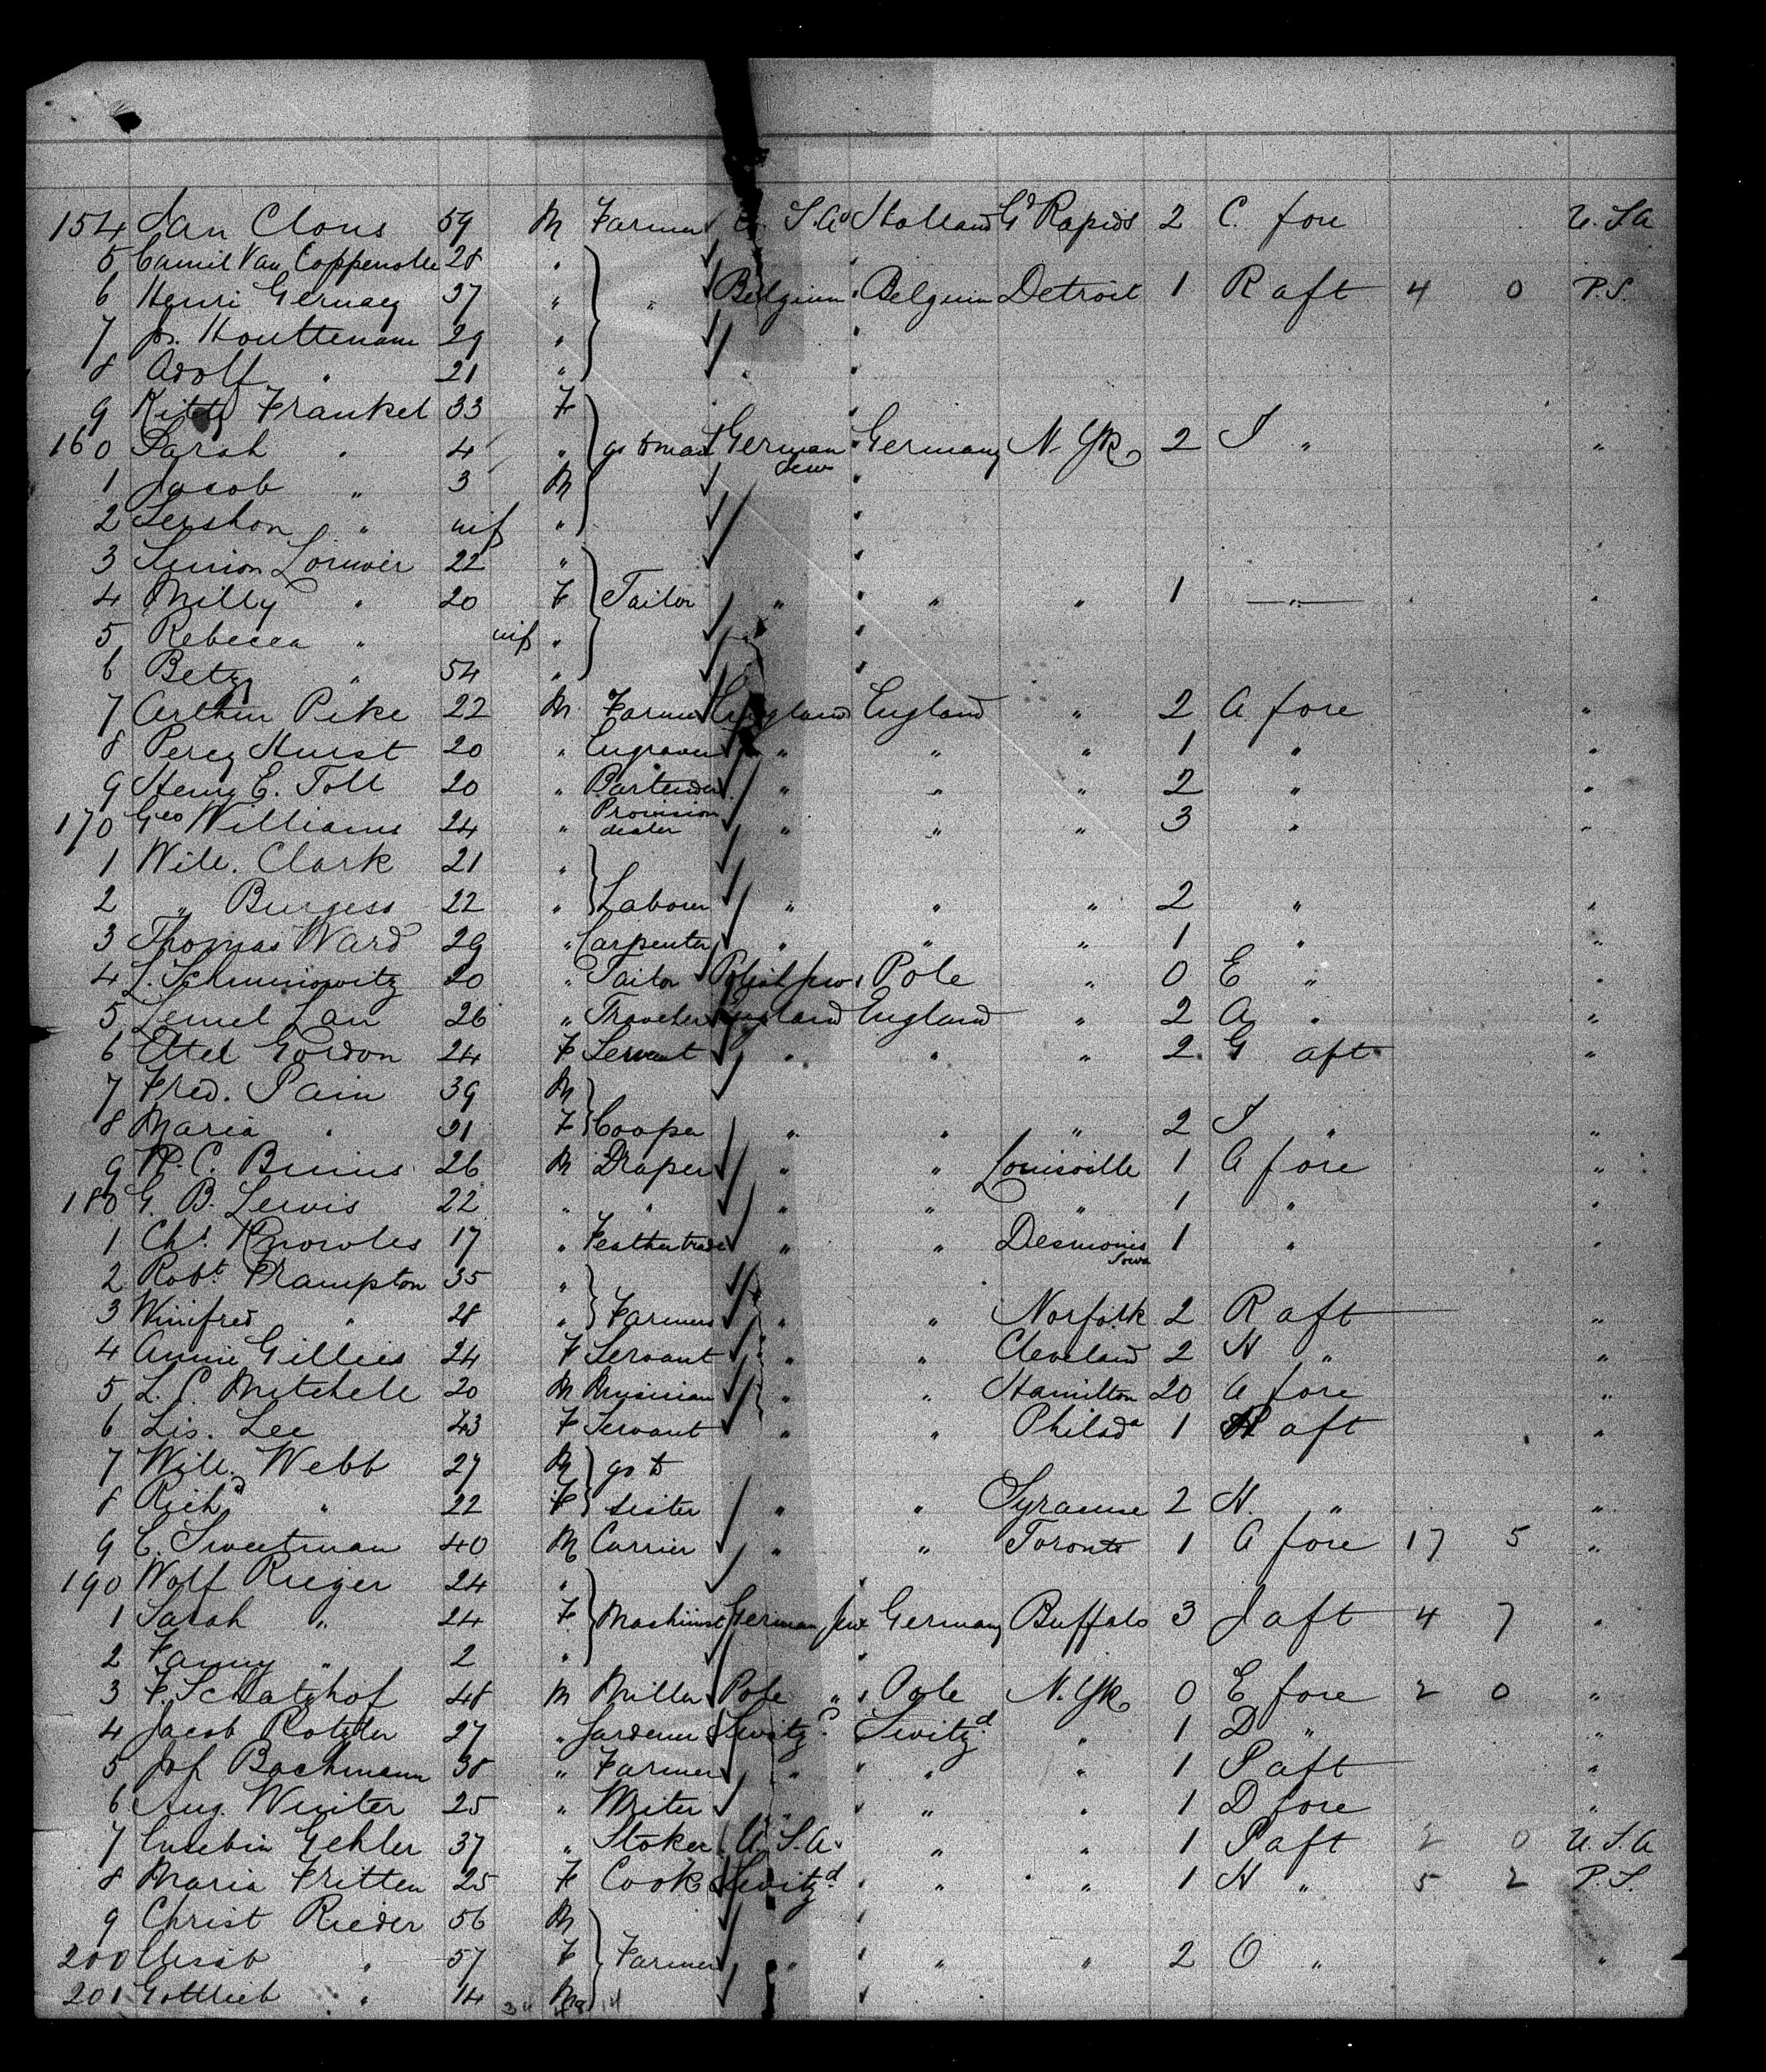 154 Jan Clous 59 M Farmer U. S. A. Holland Gd Rapids 2 C. fore U. S. A
5 Camil Van Coppenolle 28 "
6 Henri Gernaey 37 " " Belgium Belgium Detroit 1 R aft 4 0 P. S.
7 Js. Houttenam 29 "
8 Adolf " 21 "
9 Kitty Frankel 33 F
160 Sarah " 4 " go to German Jew Germany N. Yk 2 J " "
1 Jacob " 3 M
2 Gershon " inf "
3 22 "
4 Milly " 20 F Tailor " " " 1 " "
5 Rebecca " inf "
6 Betzy " 54 "
7 Arthur Pike 22 M Farmer England England " 2 A fore "
8 Percy Hurst 20 " Engraver " " " 1 " "
9 Henry E. Toll 20 " Bartender " " " 2 " "
170 Geo Williams 24 " Provision dealer " " " 3 " "
1 Will. Clark 21 "
2 " Burgess 22 " Labourer " " " 2 " "
3 Thomas Ward 29 " Carpenter " " " 1 " "
4 20 " Tailor Polish Jew Pole " 0 E " "
5 26 " Traveler England England " 2 A " "
6 Ettel Gordon 24 F Servant " " " 2 G aft "
7 Fred. Pain 39 M
8 Maria " 31 F Cooper " " " 2 J " "
9 C. Binns 26 M Draper " " Louisville 1 A fore "
180 G. B. Lewis 22 " " " " " 1 " "
1 Chs. Knowles 17 " Feathertrade " " Desmoines Iowa 1 " "
2 Robt. Frampton 35 "
3 Winifred " 28 " Farmers " " Norfolk 2 R aft "
4 Annie Gillies 24 F Servant " " Cleveland 2 N " "
5 L. C. Mitchell 20 M Musician " " Hamilton 20 A fore "
6 Lis. Lee 43 F Servant " " Philada 1 R aft "
7 Will. Webb 27 M go to
8 Richd " 22 F sister " " Syracuse 2 N " "
9 C. Sweetman 40 M Currier " " Toronto 1 A fore 17 5 "
190 Wolf Rieger 24 "
1 Sarah " 24 F Mashinist German Jew Germany Buffalo 3 J aft 4 7 "
2 Fanny " 2 "
3 F. Schatzhof 48 M Miller Pole " Pole N. Yk 0 E fore 2 0 "
4 Jacob Rotzler 27 " Gardener Switzd Switzd " 1 D " "
5 Jos Bachmann 38 " Farmer " " " 1 P aft "
6 Aug. Winter 25 " Writer " " " 1 D fore "
7 Eusebin Gehler 37 " Stoker U. S. A. " " 1 P aft 2 0 U. S. A
8 Maria Fritten 25 F Cook Switzd " " 1 N " 5 2 P. S.
9 Christ Rieder 56 M
200 " 57 F Farmer " " " 2 O " "
201 Gottlieb " 14 M